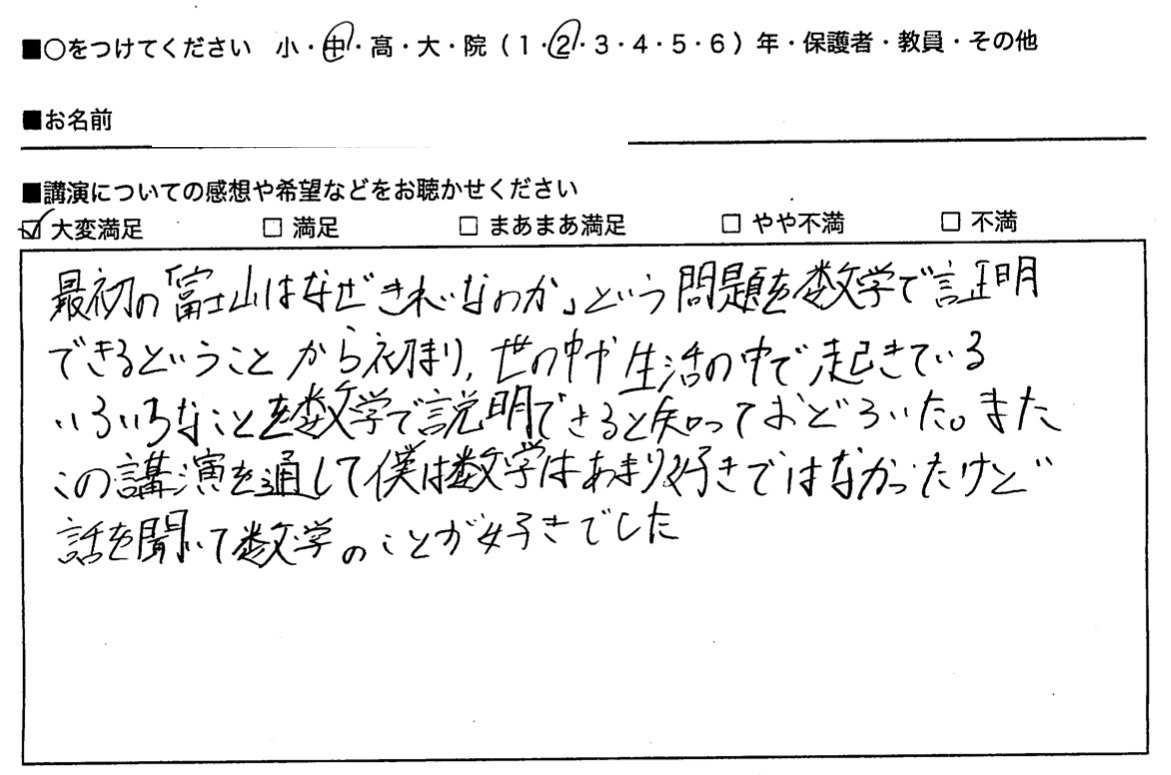 ■○をつけてください　小・中・高・大・院（1・2・3・4・5・6）年・保護者・教員・その他
■お名前
■講演についての感想や希望などをお聴かせください
☑ 大変満足　□ 満足　□ まあまあ満足　□ やや不満　□ 不満
最初の「富士山はなぜきれいなのか」という問題を数学で証明
できるということから初まり、世の中や生活の中で起きている
いろいろなことを数学で説明できると知っておどろいた。また
この講演を通して僕は数学はあまり好きではなかったけど
話を聞いて数学のことが好きでした